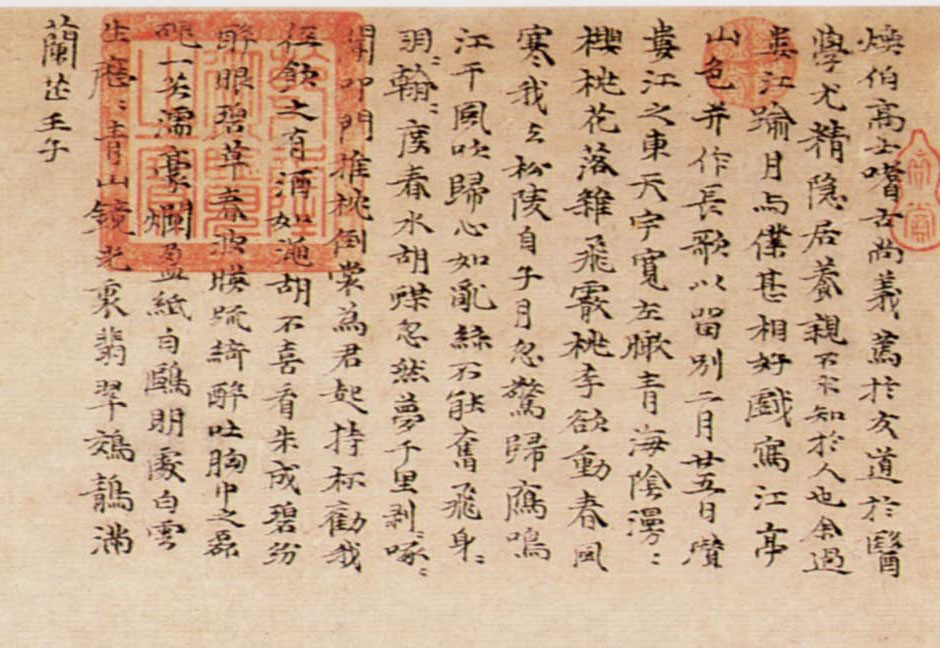 煥伯高士嗜古尚義篤於友道於醫
學尤精隱居養親不求知於人也余過
婁江踰月与僕甚相好戲寫江亭
山色并作長歌以留別二月廿五日瓚
婁江之東天宇寬左瞰青海陰漫〻
櫻桃花落雜飛霰桃李欲動春風
寒我去松陵自子月忽驚歸鴈鳴
江干風吹歸心如亂絲不能奮飛身〻
羽〻翰〻度春水胡蝶忽然夢千里剥〻啄〻
聞叩門推枕倒裳為君起持杯勸我
徑飲之有酒如澠胡不喜看朱成碧紛
醉眼碧草春波暎疏綺醉吐胸中之磊
磈一笑濡豪爛盈紙白鷗明處白雲
生青山鏡光裏翡翠鵁鶄滿
蘭茝壬子